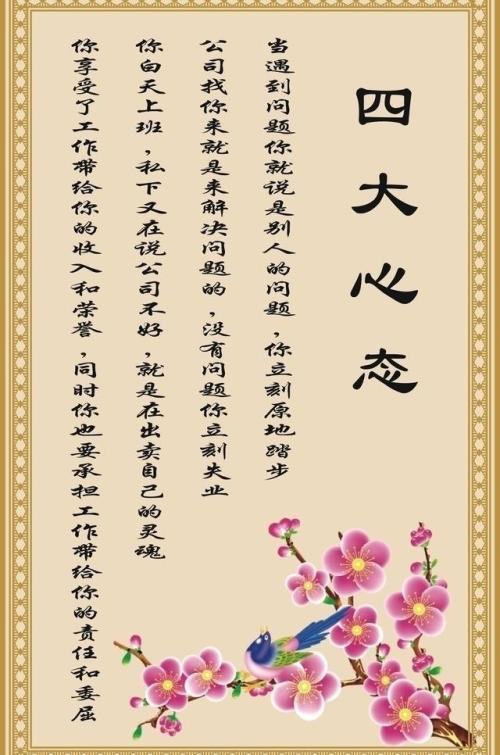 四大心态
当遇到问题你就说是别人的问题,你立刻原地踏步
公司找你来就是来解决问题的,没有问题你立刻失业
你白天上班,私下又在说公司不好,就是在出卖自己的灵魂
你享受了工作带给你的收入和荣誉,同时你也要承担工作带给你的责任和委屈